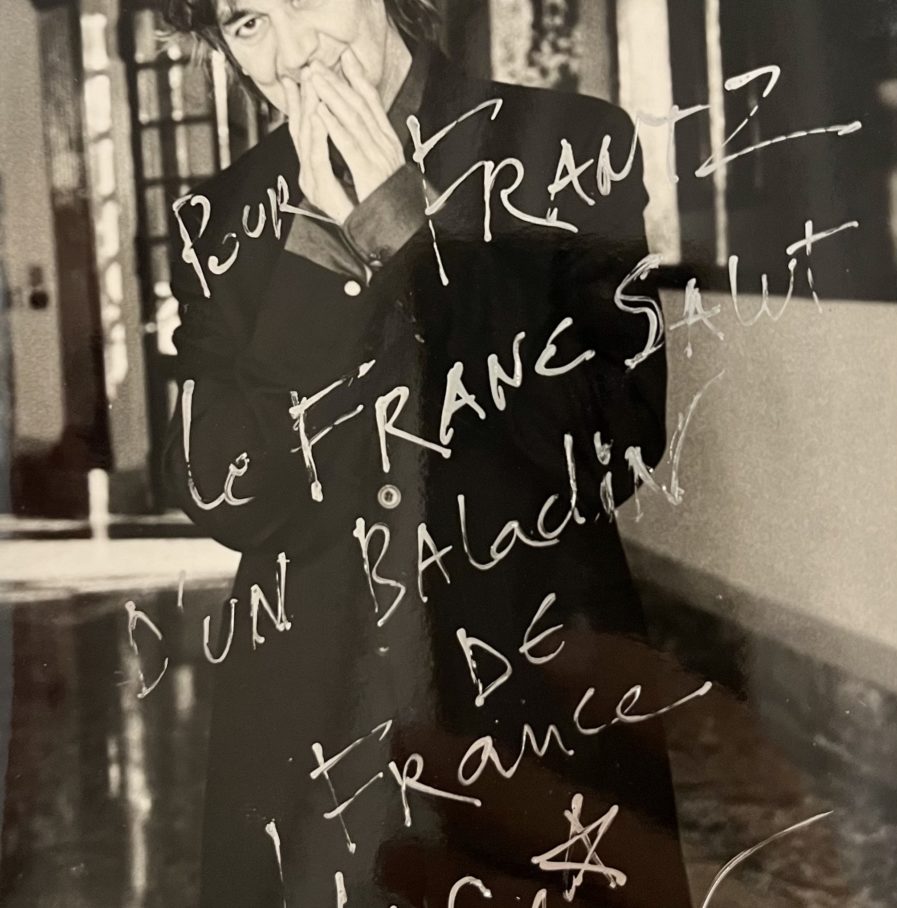 POUR FRANTZ
Le FRANC SALUT
D'UN BALadiN
DE
FRance